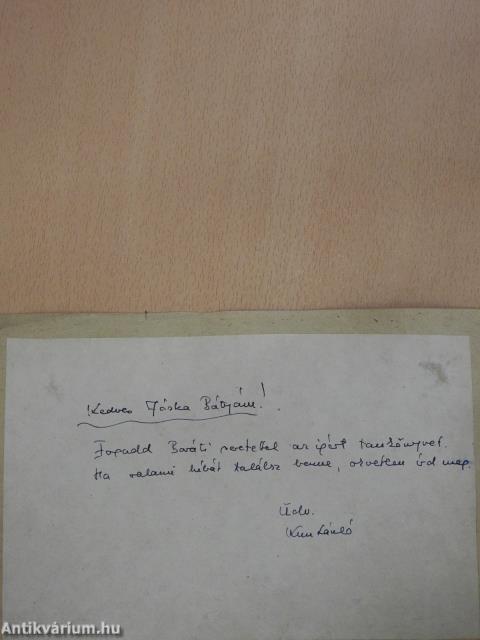 Kedves Jóska Bátyám!
Fogadd Baráti szeretettel az igért tankönyvet.
Ha valami hibát találsz benne,észrevétlen írd meg.
Üdv.
Kun László
Antikvárium.hu